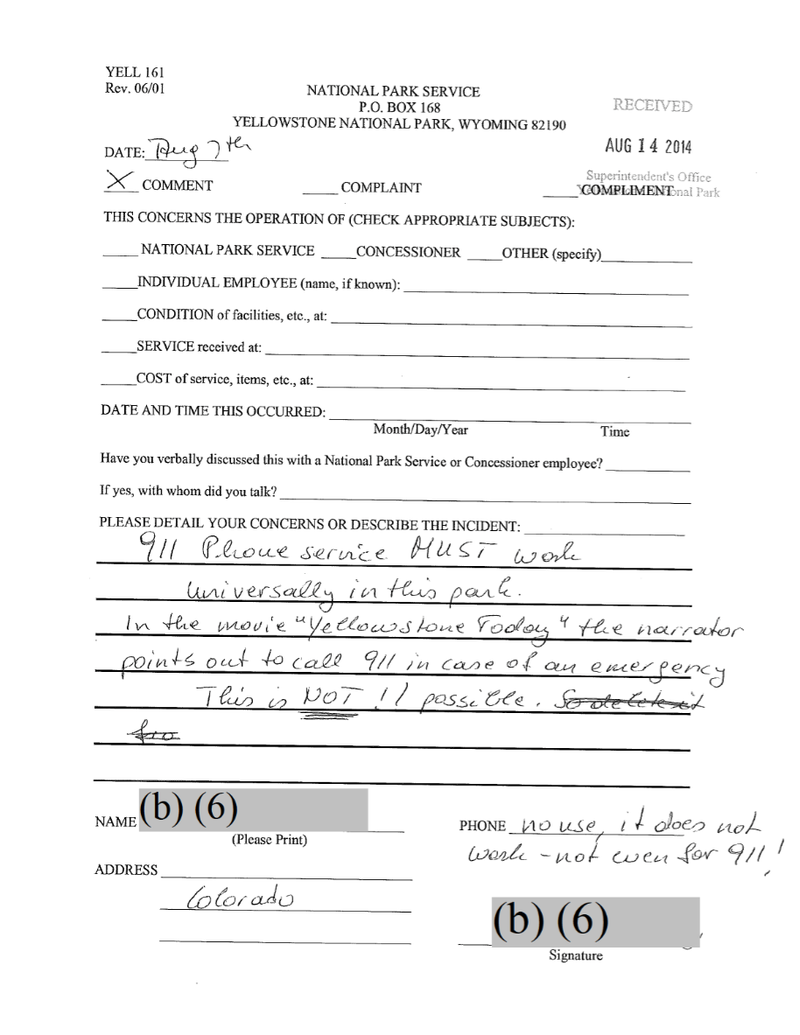 YELL 161
Rev. 06/01
NATIONAL PARK SERVICE
P.O. BOX 168
YELLOWSTONE NATIONAL PARK, WYOMING 82190
RECEIVED
AUG 14 2014
Superintendent's Office
DATE: Aug 7th
X COMMENT ____ COMPLAINT ____ COMPLIMENT
THIS CONCERNS THE OPERATION OF (CHECK APPROPRIATE SUBJECTS):
____ NATIONAL PARK SERVICE ____ CONCESSIONER ____ OTHER (specify)____
____ INDIVIDUAL EMPLOYEE (name, if known): ____
____ CONDITION of facilities, etc., at: ____
____ SERVICE received at: ____
____ COST of service, items, etc., at: ____
DATE AND TIME THIS OCCURRED: ____
Month/Day/Year Time
Have you verbally discussed this with a National Park Service or Concessioner employee? ____
If yes, with whom did you talk? ____
PLEASE DETAIL YOUR CONCERNS OR DESCRIBE THE INCIDENT: ____
911 Phone service MUST work
universally in this park.
In the movie "Yellowstone Today" the narrator
points out to call 911 in case of an emergency
This is NOT !! possible. So delete it
fro
NAME (b) (6)
(Please Print)
PHONE no use, it does not
work - not even for 911!
ADDRESS ____
Colorado
(b) (6)
Signature